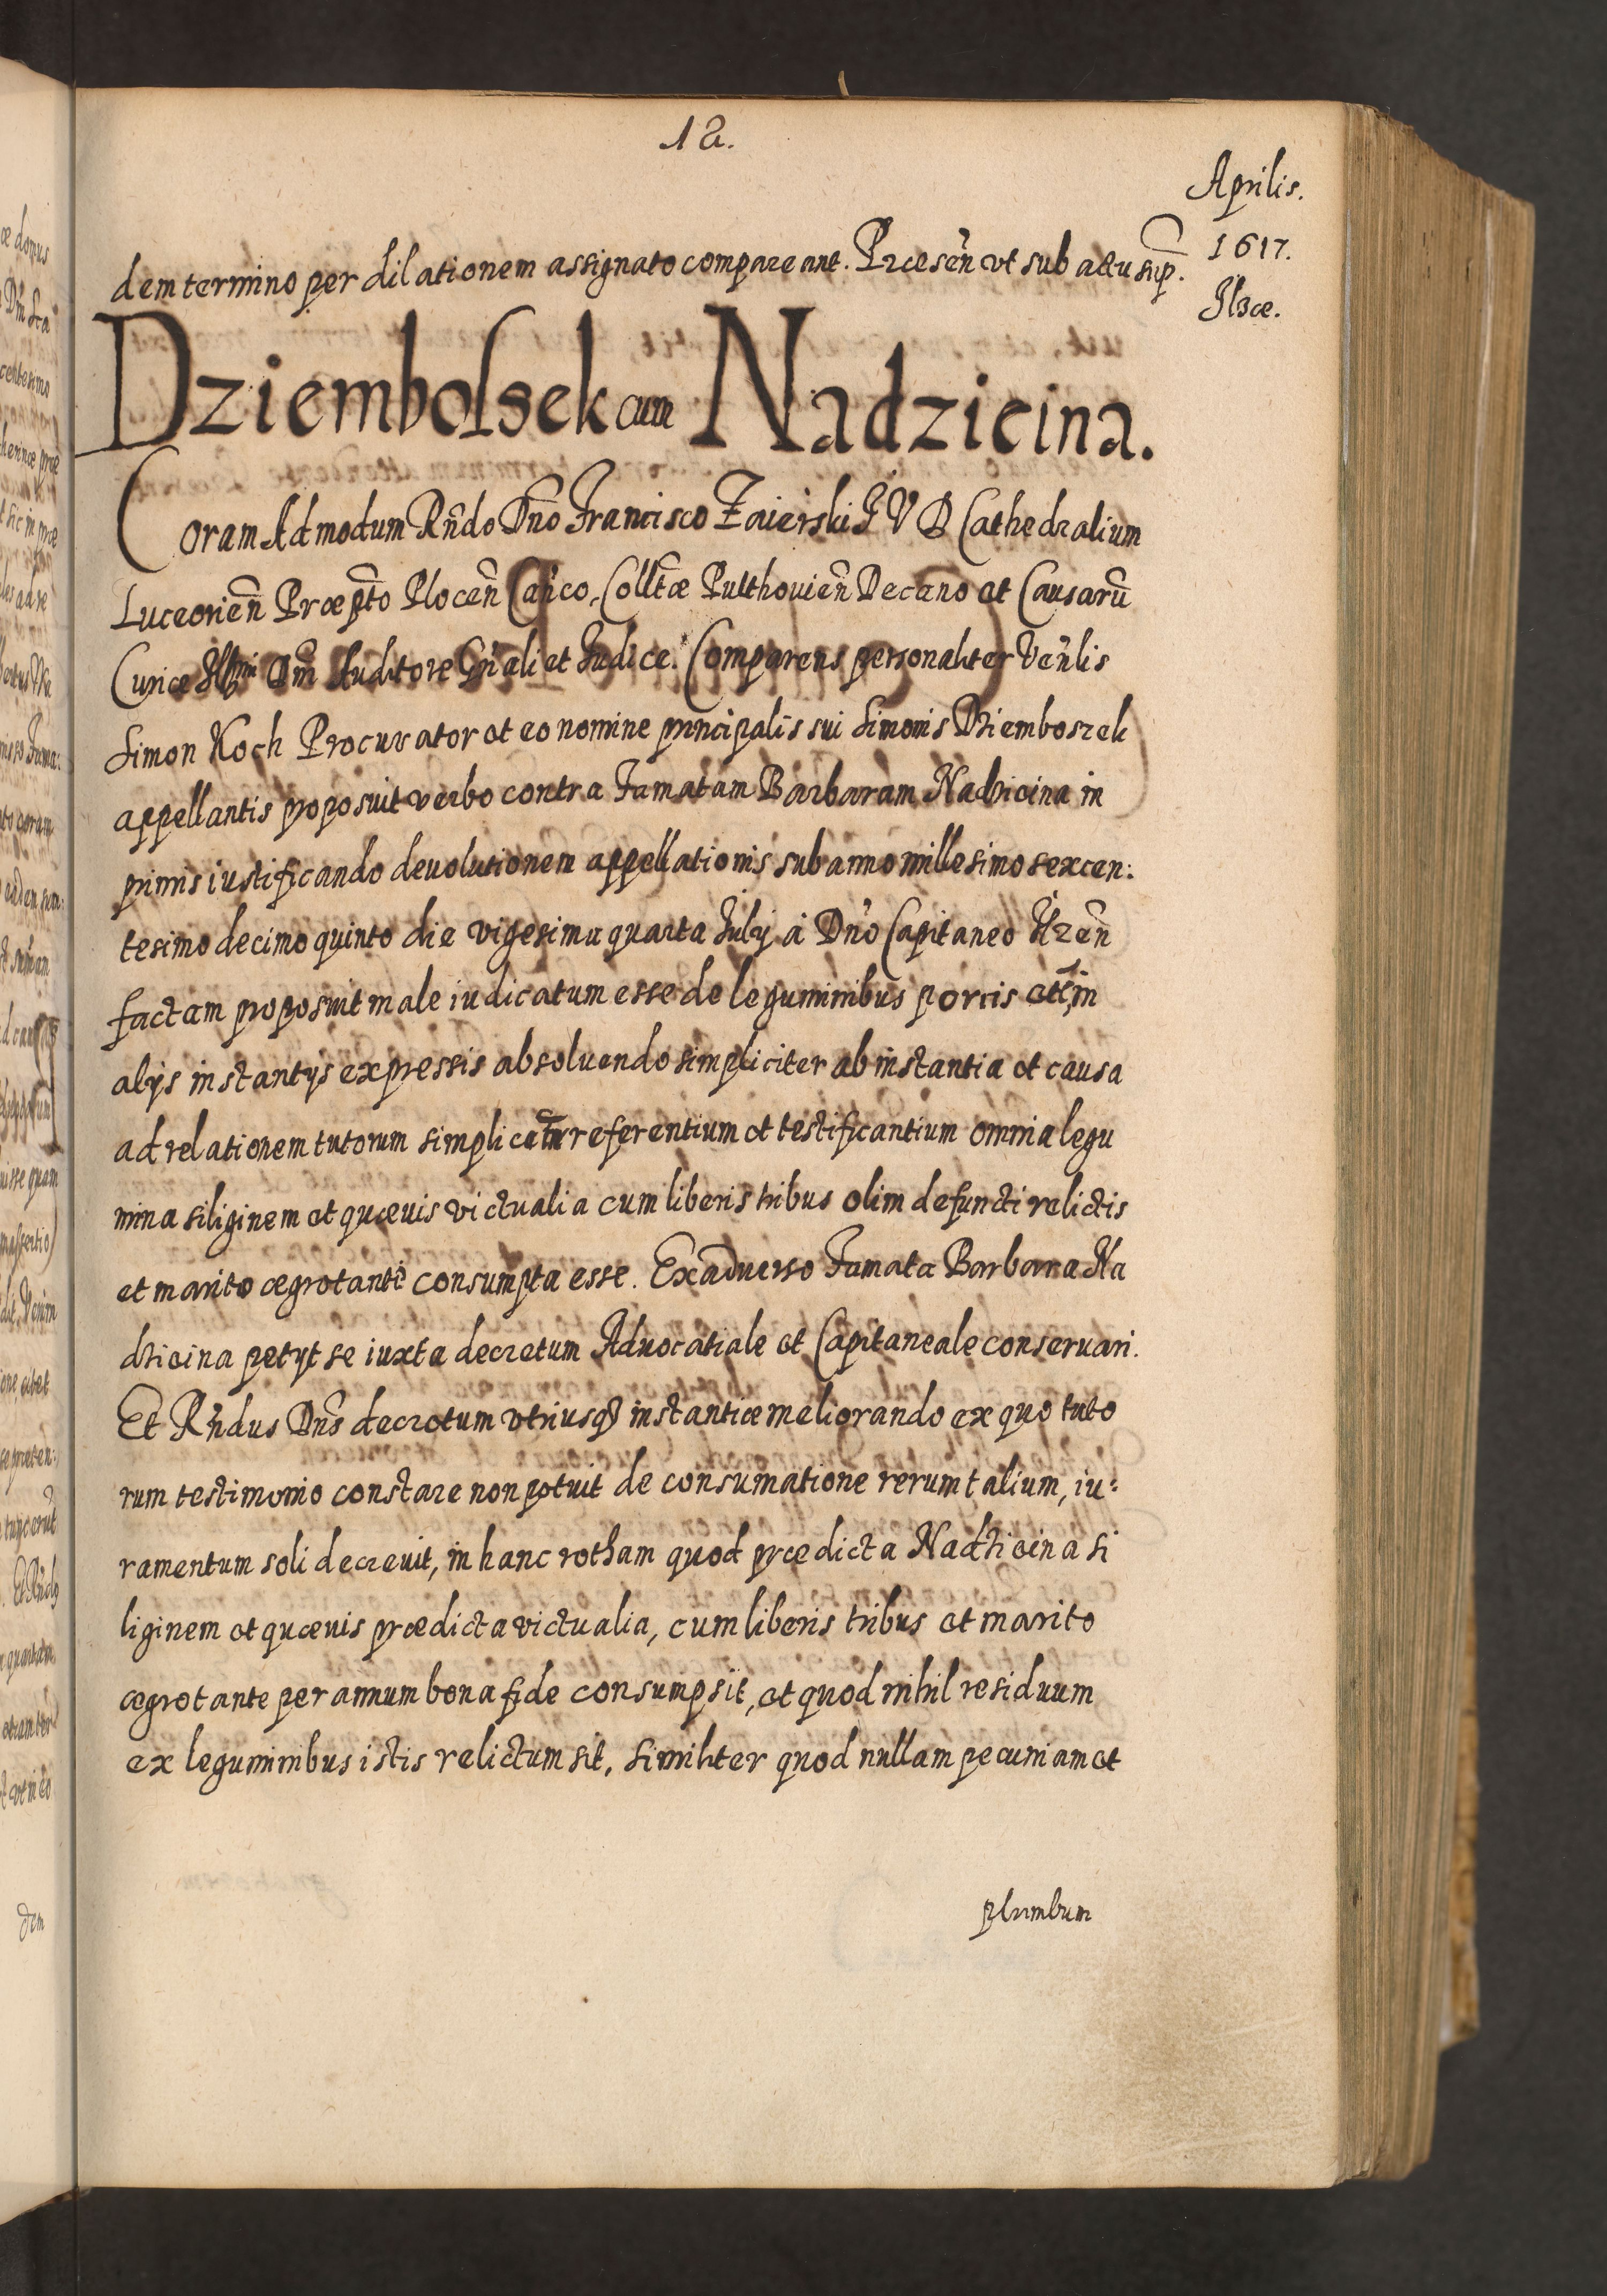 12.
Aprilis.
1617.
Ilzæ.
dem termino per dilationem assignato compareant. Præsen̄ vt sub actu sup̄.
Dziembosſek cum Nadzicina.
Coram Admodum Rn̄do Dn̄o Francisco Zaierski I V D Cathedralium
Luceorien̄ Præpto Plocen̄ Can̄co, Colltæ Pulthouien̄ Decano et Causarū
Curiæ Illmi Dni Auditore Gn̄ali et Iudice. Comparens personaliter Ven̄lis
Simon Koch Procurator et eo nomine principalis sui Simonis Dziemboszek
appellantis proposuit verbo contra Famatam Barbaram Nadzicina in
primis iustificando deuolutionem appellationis sub anno millesimo sexcen:
tesimo decimo quinto die vigesima quarta Iulÿ à Dn̄o Capitaneo Ilzen̄
factam proposuit male iudicatum esse de leguminibus porcis etc̄ in
alÿs instantÿs expressis absoluendo simpliciter ab instantia et causa
ad relationem tutorum simplicatr̄ referentium et testificantium omnia legu
mina siliginem et quæuis victualia cum liberis tribus olim defuncti relictis
et marito ægrotante consumpta esse. Exaduerso Famata Barbara Na
dzicina petÿt se iuxta decretum Aduocatiale et Capitaneale conseruari.
Et Rn̄dus Dn̄s decretum vtriusq₃ instantiæ meliorando ex quo tuto
rum testimonio constare non potuit de consumatione rerum talium, iu:
ramentum soli decreuit, in hanc rotham quod prædicta Nadzicina si
liginem et quæuis prædicta victualia, cum liberis tribus et marito
ægrotante per annum bona fide consumpsit, et quod nihil residuum
ex leguminibus istis relictum sit, similiter quod nullam pecuniam et
plumbum